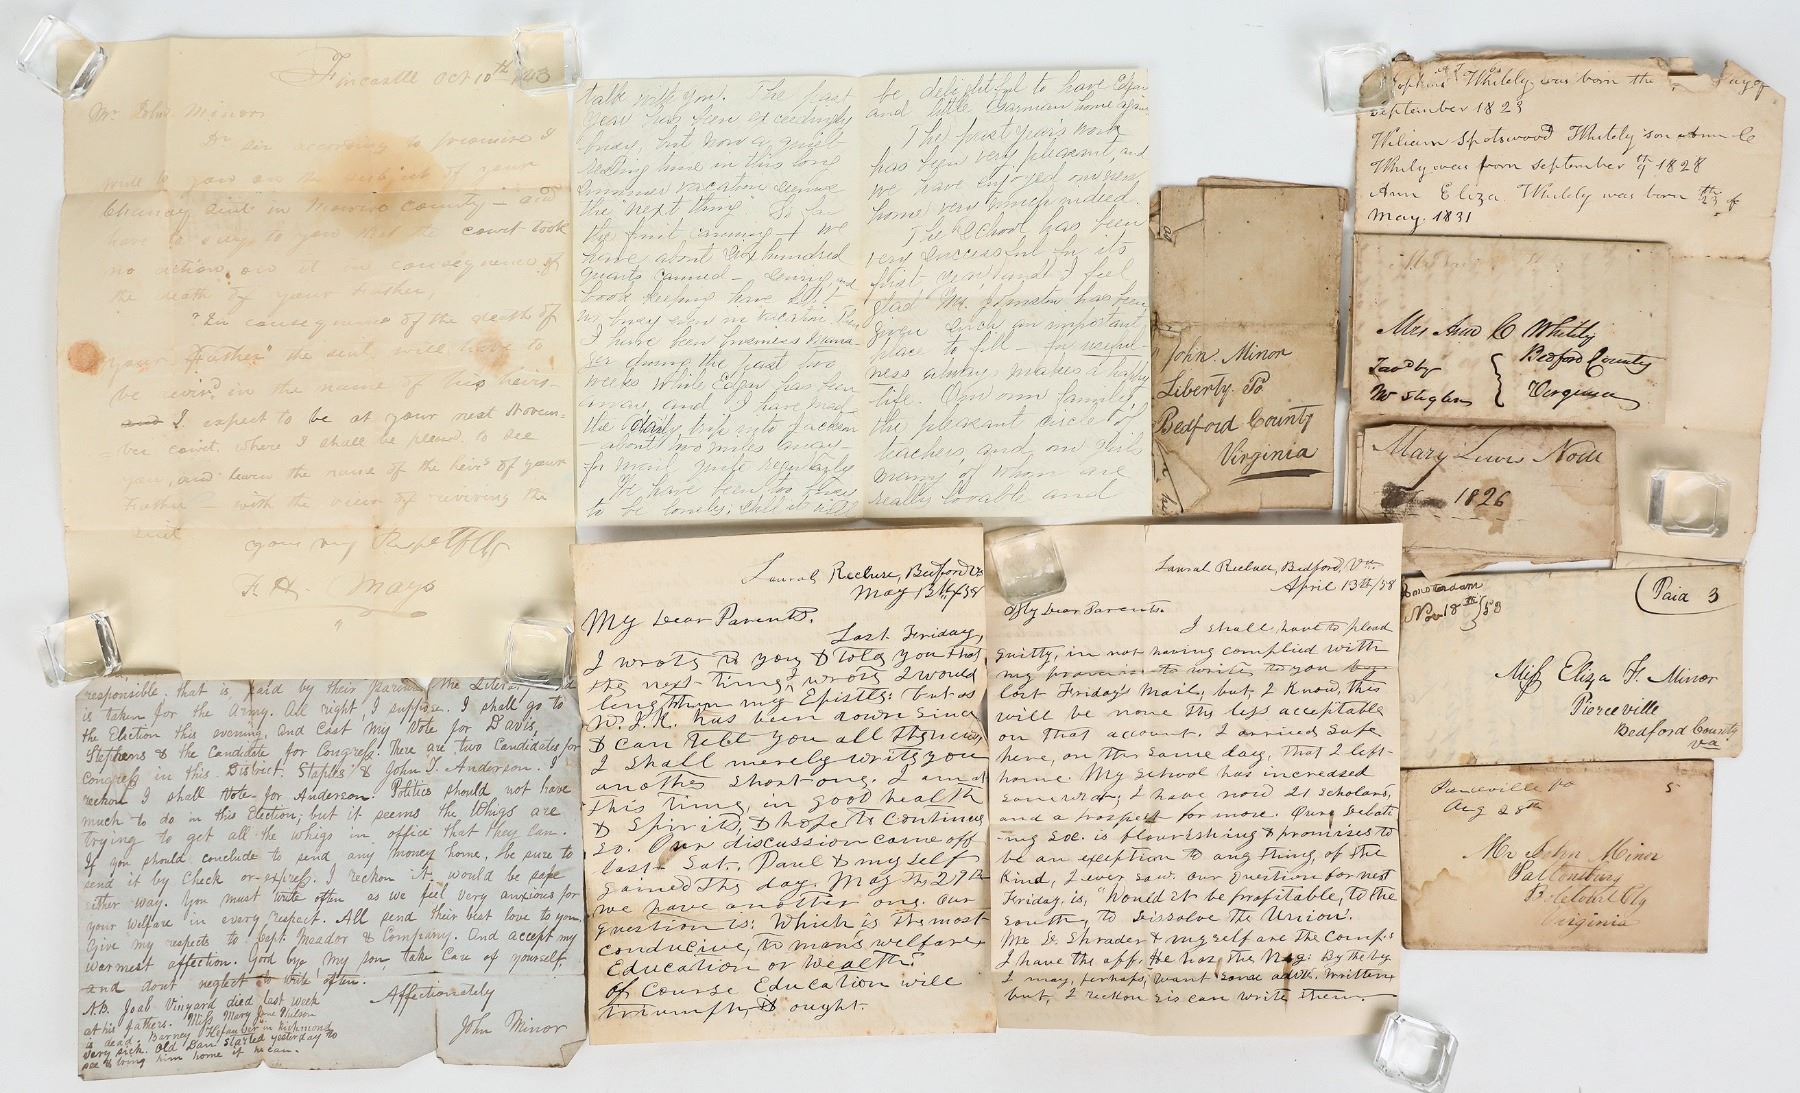 Fincastle Oct 10th 1843
Mr. John Minor
Dr sir according to promise I
write to you on the subject of your
Chancey suit in Monroe County - and
have to say to you that the court took
no action on it in consequence of
the death of your Father,
"In consequence of the death of
your Father" the suit will have to
be reviv'd in the name of his heirs-
and I expect to be at your next Novem-
ber court, where I shall be pleased to see
you, and learn the names of the heirs of your
Father - with the view of reviving the
suit
your very Respectfully
Mays
talk with you. The past
year has been exceedingly
busy, but now a quiet
resting time in this long
summer vacation seems
the "next thing". So far
the fruit canning - we
have about six hundred
quarts canned - sewing, and
book keeping have kept
me busy even in vacation.
I have been business mana-
ger during the past two
weeks while Edgar has been
away, and I have made
the daily trip into Jackson
- about two miles away -
for mail, quite regularly
We have been too busy
to be lonely, still it will
be delightful to have Edgar
and little home again
The first year's work
has been very pleasant, and
we have enjoyed our new
home very much indeed.
The School has been
very successful for its
first year and I feel
glad Mr. Johnston has been
given such an important
place to fill - for useful-
ness always makes a happy
life. Our own family,
the pleasant circle of
teachers, and our girls
many of whom are
really lovable and
Whitely was born the
September 1823
William Spotswood Whitely son
Whitely was born september 9th 1828
Ann Eliza Whitely was born 23th of
May. 1831
John Minor
Liberty Po
Bedford County
Virginia
Mrs Ann C Whitely
Bedford County
Virginia
Mary Lewis
1826
Nov 18th 53
Paid 3
Miss Eliza F. Minor
Pierceville
Bedford County
Va
Pierceville Va
Aug 28th
5
Mr John Minor
Pattonsburg
Botetourt Cty
Virginia
Laurel Recluse, Bedford Va
May 12th/58
My Dear Parents.
Last Friday,
I wrote to you & told you that
the next time I wrote I would
lengthen my Epistle: but as
W.J.K. has been down since
& can tell you all the news,
I shall merely write you
another short one. I am at
this time, in good health
& Spirits, & hope to continue
so. Our discussion came off
last Sat. Paul & myself
gained the day. May the 29th
we have another one. Our
question is: Which is the most
conducive, to man's welfare
Education or Wealth?
Of course Education will
triumph, & ought.
Laurel Recluse, Bedford, Va.
April 13th/58
My Dear Parents.
I shall, have to plead
guilty, in not having complied with
my promise to write to you by
last Friday's mail, but, I know, this
will be none the less acceptable
on that account. I arrived safe
here, on the same day, that I left
home. My school has increased
some what, I have now 21 scholars,
and a prospect for more. Our debat-
-ing Soc. is flourishing & promises to
be an exception to anything, of the
kind, I ever saw. Our question for next
Friday, is, "Would it be profitable, to the
South, to dissolve the Union".
Mr. D. Shrader & myself are the Comp.s
I have the aff. He has the Neg: By the by
I may, perhaps, want some advts. written
but, I reckon sis can write them.
responsible, that is, paid by their parents. The Literary
is taken for the Army. All right, I suppose. I shall go to
the Election this evening, and cast my vote for Davis,
Stephens & the Candidate for Congress. There are two candidates for
Congress in this District. Staples & John T. Anderson. I
reckon I shall vote for Anderson. Politics should not have
much to do in this Election; but it seems the Whigs are
trying to get all the whigs in office that they can.
If you should conclude to send any money home, be sure to
send it by check or express. I reckon it would be safe
either way. You must write often as we feel very anxious for
your welfare in every respect. All send their best love to you.
Give my respects to Capt. Meador & Company. And accept my
warmest affection. Good bye, my son, take care of yourself,
and dont neglect to write often.
Affectionately
John Minor
N.B. Joab Vinyard died last week
at his fathers. Miss Mary Jane Wilson
is dead. Barney Hefauver in Richmond
very sick. Old Dan started yesterday to
see & bring him home if he can.